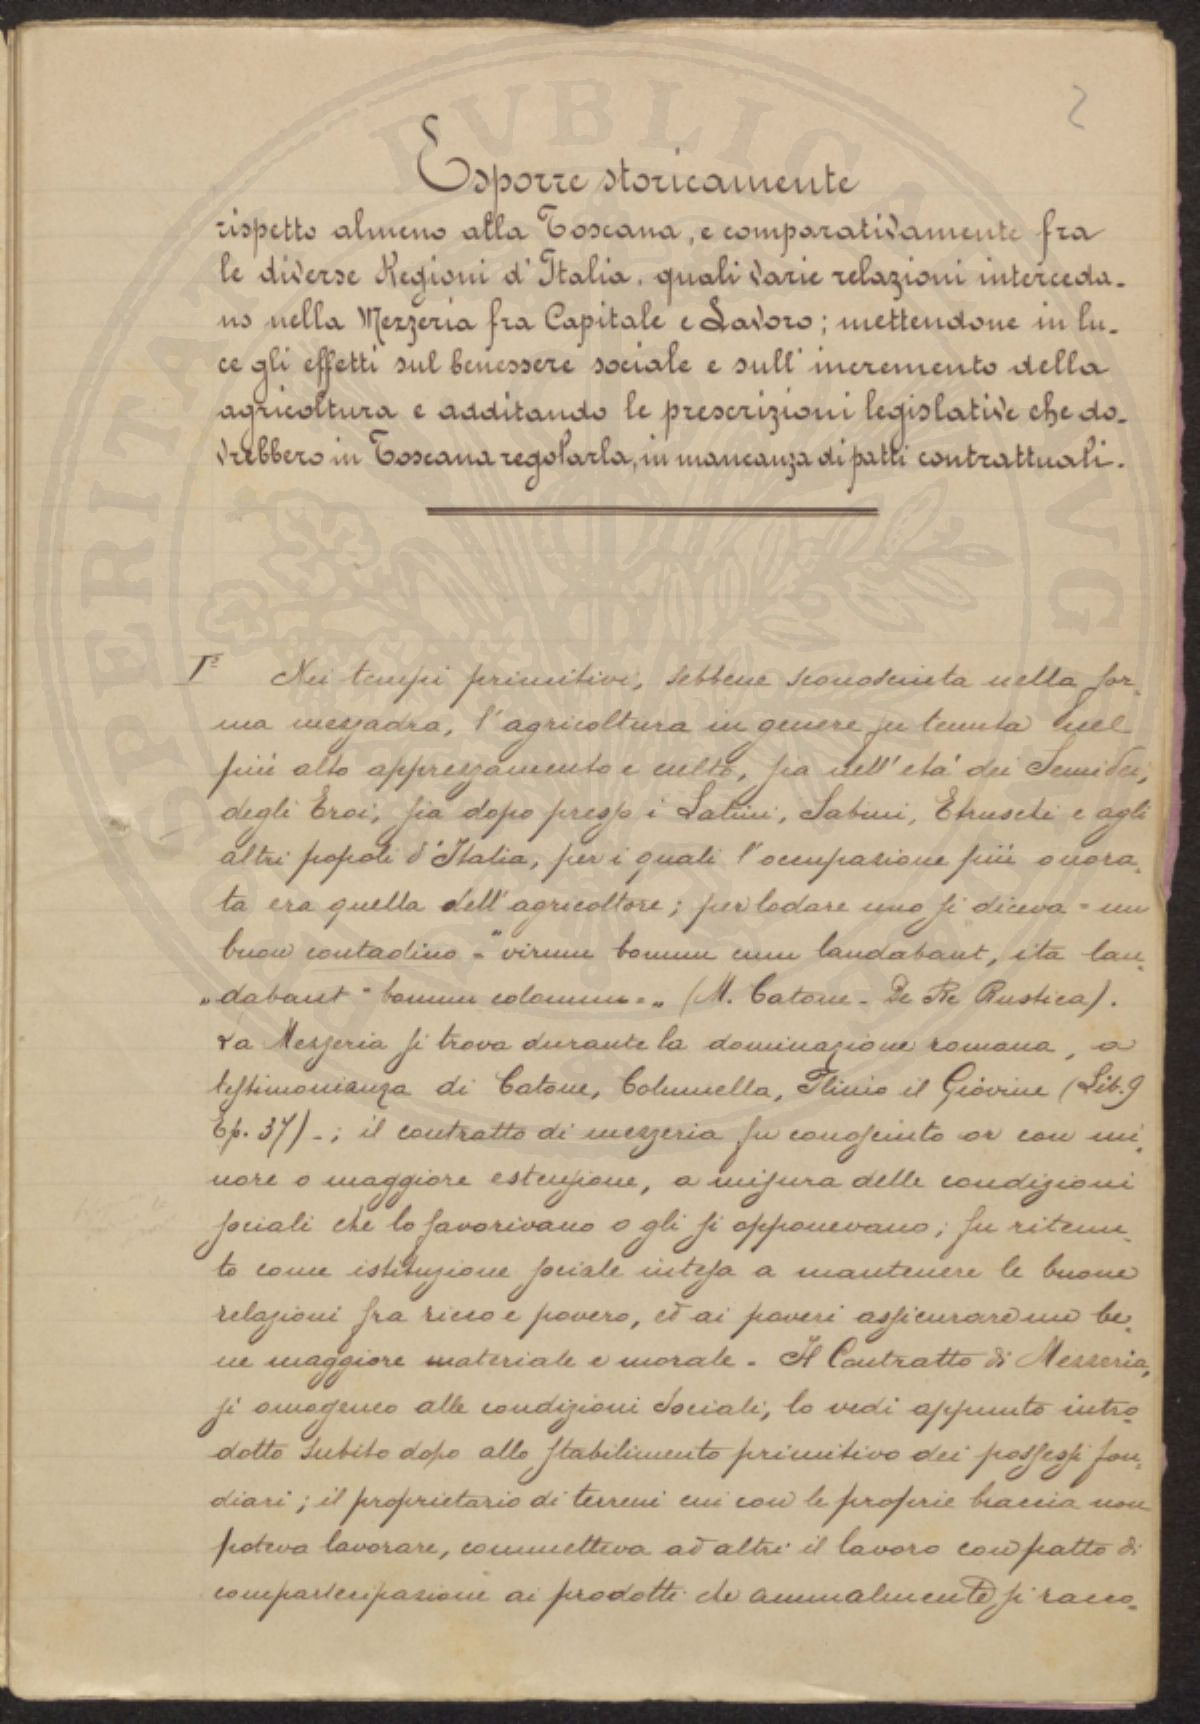 2
Esporre storicamente
rispetto almeno alla Toscana, e comparativamente fra
le diverse Regioni d'Italia, quali varie relazioni interceda-
no nella Mezzeria fra Capitale e Lavoro; mettendone in lu-
ce gli effetti sul benessere sociale e sull'incremento della
agricoltura e additando le prescrizioni legislative che do-
vrebbero in Toscana regolarla, in mancanza di patti contrattuali.
I° Nei tempi primitivi, sebbene sconosciuta nella for-
ma mezzadra, l'agricoltura in genere fu tenuta nel
più alto apprezzamento e culto, sia nell'età dei Semidei,
degli Eroi, sia dopo presso i Latini, Sabini, Etruschi e agli
altri popoli d'Italia, per i quali l'occupazione più onora-
ta era quella dell'agricoltore; per lodare uno si diceva = un
buon contadino = "virum bonum cum laudabant, ita lau-
"dabant = bonum colonum = " (M. Catone - De Re Rustica).
La Mezzeria si trova durante la dominazione romana, a
testimonianza di Catone, Columella, Plinio il Giovine (Lib. 9
Ep. 37) - ; il contratto di mezzeria fu conosciuto or con mi-
nore o maggiore estensione, a misura delle condizioni
sociali che lo favorivano o gli si opponevano; fu ritenu-
to come istituzione sociale intesa a mantenere le buone
relazioni fra ricco e povero, ed ai poveri assicurare un be-
ne maggiore materiale e morale. Il Contratto di Mezzeria,
sì omogeneo alle condizioni sociali, lo vedi appunto intro-
dotto subito dopo allo stabilimento primitivo dei possessi fon-
diari; il proprietario di terreni cui con le proprie braccia non
poteva lavorare, commetteva ad altri il lavoro con patto di
compartecipazione ai prodotti che annualmente si racco-
SPERITATI PVBLICAE AVGENDAE